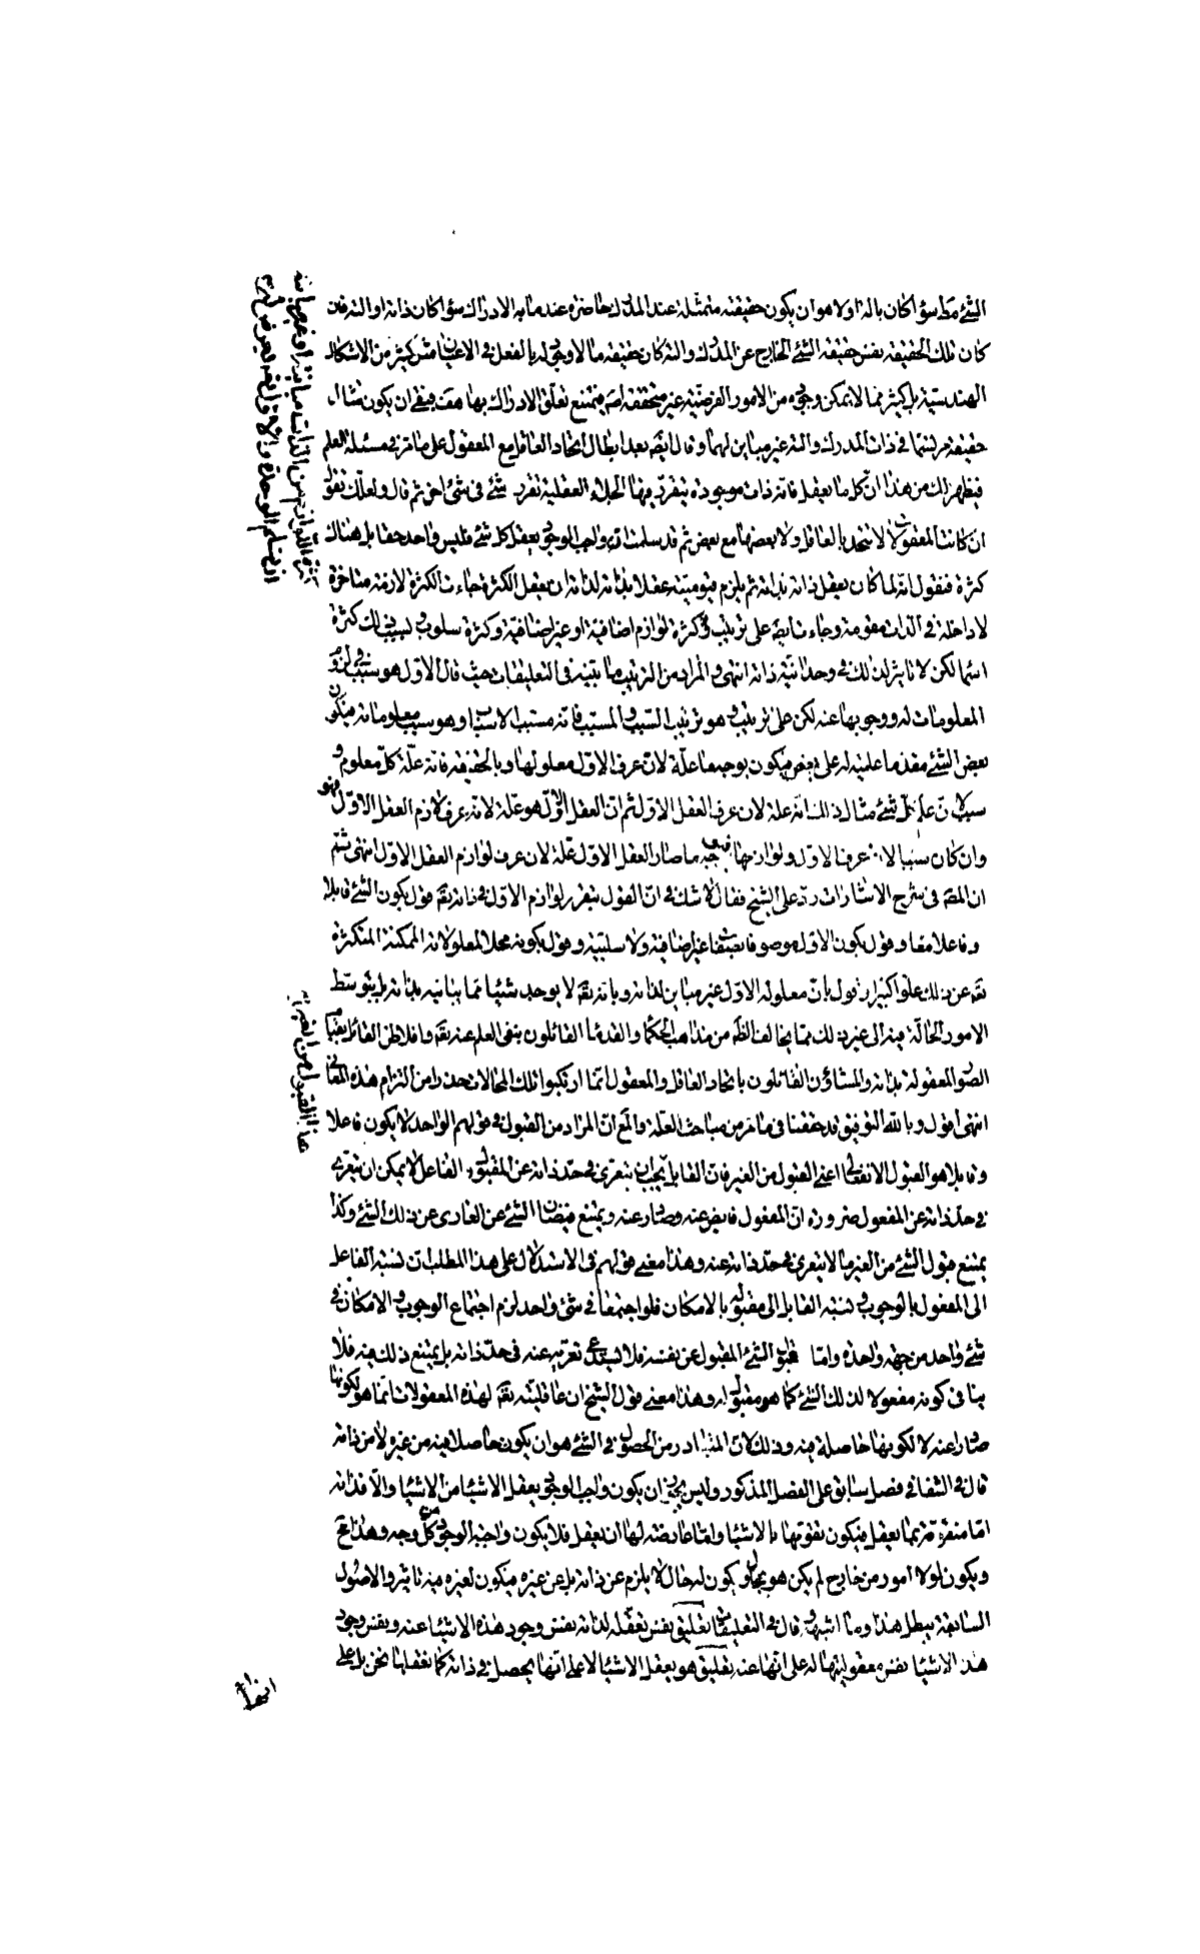 الشئ مط سواء كان بالة او لا هو ان يكون حقيقته متمثلة عند المدرك حاضرة عند ما به الادراك سواء كان ذاته او الته فان
كان تلك الحقيقة نفس حقيقة الشئ الخارج عن المدرك والته كان حقيقة ما لا وجود له بالفعل في الاعيان مثل كثير من الاشكال
الهندسية بل كثير مما لا يمكن وجوده من الامور الفرضية غير متحققة اصلا فيمتنع تعلق الادراك بها هف فبقى ان يكون مثال
حقيقته مرتسما في ذات المدرك والته غير مباين لهما وقال ايضه بعد ابطال اتحاد العاقل مع المعقول على ما مر في مسئلة العلم
فيظهر لك من هذا ان كل ما يعقل فانه ذات موجودة يتقرر فيها الجلايا العقلية تقرر شئ في شئ اخر ثم قال ولعلك تقول
ان كانت المعقولات لا تتحد بالعاقل ولا بعضها مع بعض ثم قد سلمت ان واجب الوجود يعقل كل شئ فليس واحدا حقا بل هناك
كثرة فنقول انه لما كان يعقل ذاته بذاته ثم يلزم قيوميته عقلا بذاته لذاته ان يعقل الكثرة جاءت الكثرة لازمة متاخرة
لا داخلة في الذات مقومة وجاءت ايضه على ترتيب وكثرة لوازم اضافية او غير اضافية وكثرة سلوب وبسبب ذلك كثرة
اسما لكن لا تاثير لذلك في وحدانية ذاته انتهى والمراد من الترتيب ما بينه في التعليقات حيث قال الاول هو سبب في لزوم
المعلومات له ووجوبها عنه لكن على ترتيب وهو ترتيب السبب والمسبب فانه مسبب الاسباب وهو سبب معلوماته فيكون
بعض الشئ مقدما علميته له على بعض فيكون بوجه ما علة لان عرف الاول معلولها وبالحقيقة فانه علة كل معلوم و
سبب لان علم كل شئ مثال ذلك انه علة لان عرف العقل الاول ثم ان العقل الاول هو علة لانه عرف لازم العقل الاول فهو
وان كان سببا لان عرف الاول ولوازمها فبوجه ما صار العقل الاول علة لان عرف لوازم العقل الاول انتهى ثم
ان المصه في شرح الاشارات رد على الشيخ فقال لا شك في ان القول بتقرر لوازم الاول في ذاته تعه قول بكون الشئ قابلا
وفاعلا معا وقول بكون الاول موصوفا بصفات غير اضافية ولا سلبية وقول بكونه محلا لمعلولاته الممكنة المتكثرة
تعه عن ذلك علوا كبيرا وقول بان معلوله الاول غير مباين لذاته وبانه تعه لا يوجد شيئا مما يباينه بذاته بل بتوسط
الامور الحالة فيه الى غير ذلك مما يخالف الظه من مذاهب الحكما والقدما القائلون بنفى العلم عنه تعه وافلاطن القائل بقيام
الصور المعقولة بذاته والمشاؤن القائلون باتحاد العاقل والمعقول انما ارتكبوا تلك المحالات حذرا من التزام هذه المعاني
انتهى اقول وبالله التوفيق قد حققنا في ما مر من مباحث العلة والمع ان المراد من القبول في قولهم الواحد لا يكون فاعلا
وقابلا هو القبول الانفعالي اعنى القبول من الغير فان القابل يجب ان يتعرى في حد ذاته عن المقبول والفاعل لا يمكن ان يتعرى
في حد ذاته عن المفعول ضرورة ان المفعول فايض عنه وصادر عنه ويمتنع فيضان الشئ عن العارى عن ذلك الشئ وكذا
يمتنع قبول الشئ من الغير ما لا يتعرى في حد ذاته عنه وهذا معنى قولهم في الاستدلال على هذا المطلب ان نسبة الفاعل
الى المفعول بالوجوب ونسبة القابل الى مقبوله بالامكان فلو اجتمعا في شئ واحد لزم اجتماع الوجوب والامكان في
شئ واحد من جهة واحدة واما قبول الشئ المقبول عن نفسه فلا يستدعى تعريه عنه في حد ذاته بل يمتنع ذلك فيه فلا
ينافى كونه مفعولا لذلك الشئ كما هو مقبوله وهذا معنى قول الشيخ ان عاقليته تعه لهذه المعقولات انما هو لكونها
صادرا عنه لا لكونها حاصلة فيه وذلك لان المتبادر من الحصول في الشئ هو ان يكون حاصلا فيه من غيره لا من ذاته
قال في الشفا في فصل سابق على الفصل المذكور وليس يجوز ان يكون واجب الوجود يعقل الاشيا من الاشيا والا فذاته
اما متقومة بما يعقل فيكون تقومها بالاشيا واما عارضة لها ان يعقل فلا يكون واجبة الوجود من كل وجه وهذا مح
ويكون لولا امور من خارج لم يكن هو بحال ويكون له حال لا يلزم عن ذاته بل عن غيره فيكون لغيره فيه تاثير والاصول
السابقة يبطل هذا وما اشبهه وقال في التعليقات تعليق نفس تعقله لذاته نفس وجود هذه الاشيا عنه ونفس وجود
هذه الاشيا نفس معقوليتها له على انها عنه تعليق هو يعقل الاشيا لا على انها يحصل في ذاته كما نعقلها نحن بل على
انها
هذا القبول من الغير